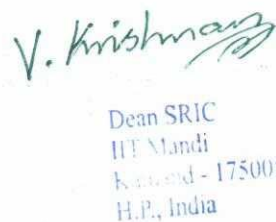 V. Krishnan
Dean SRIC
IIT Mandi
- 17500
H.P., India